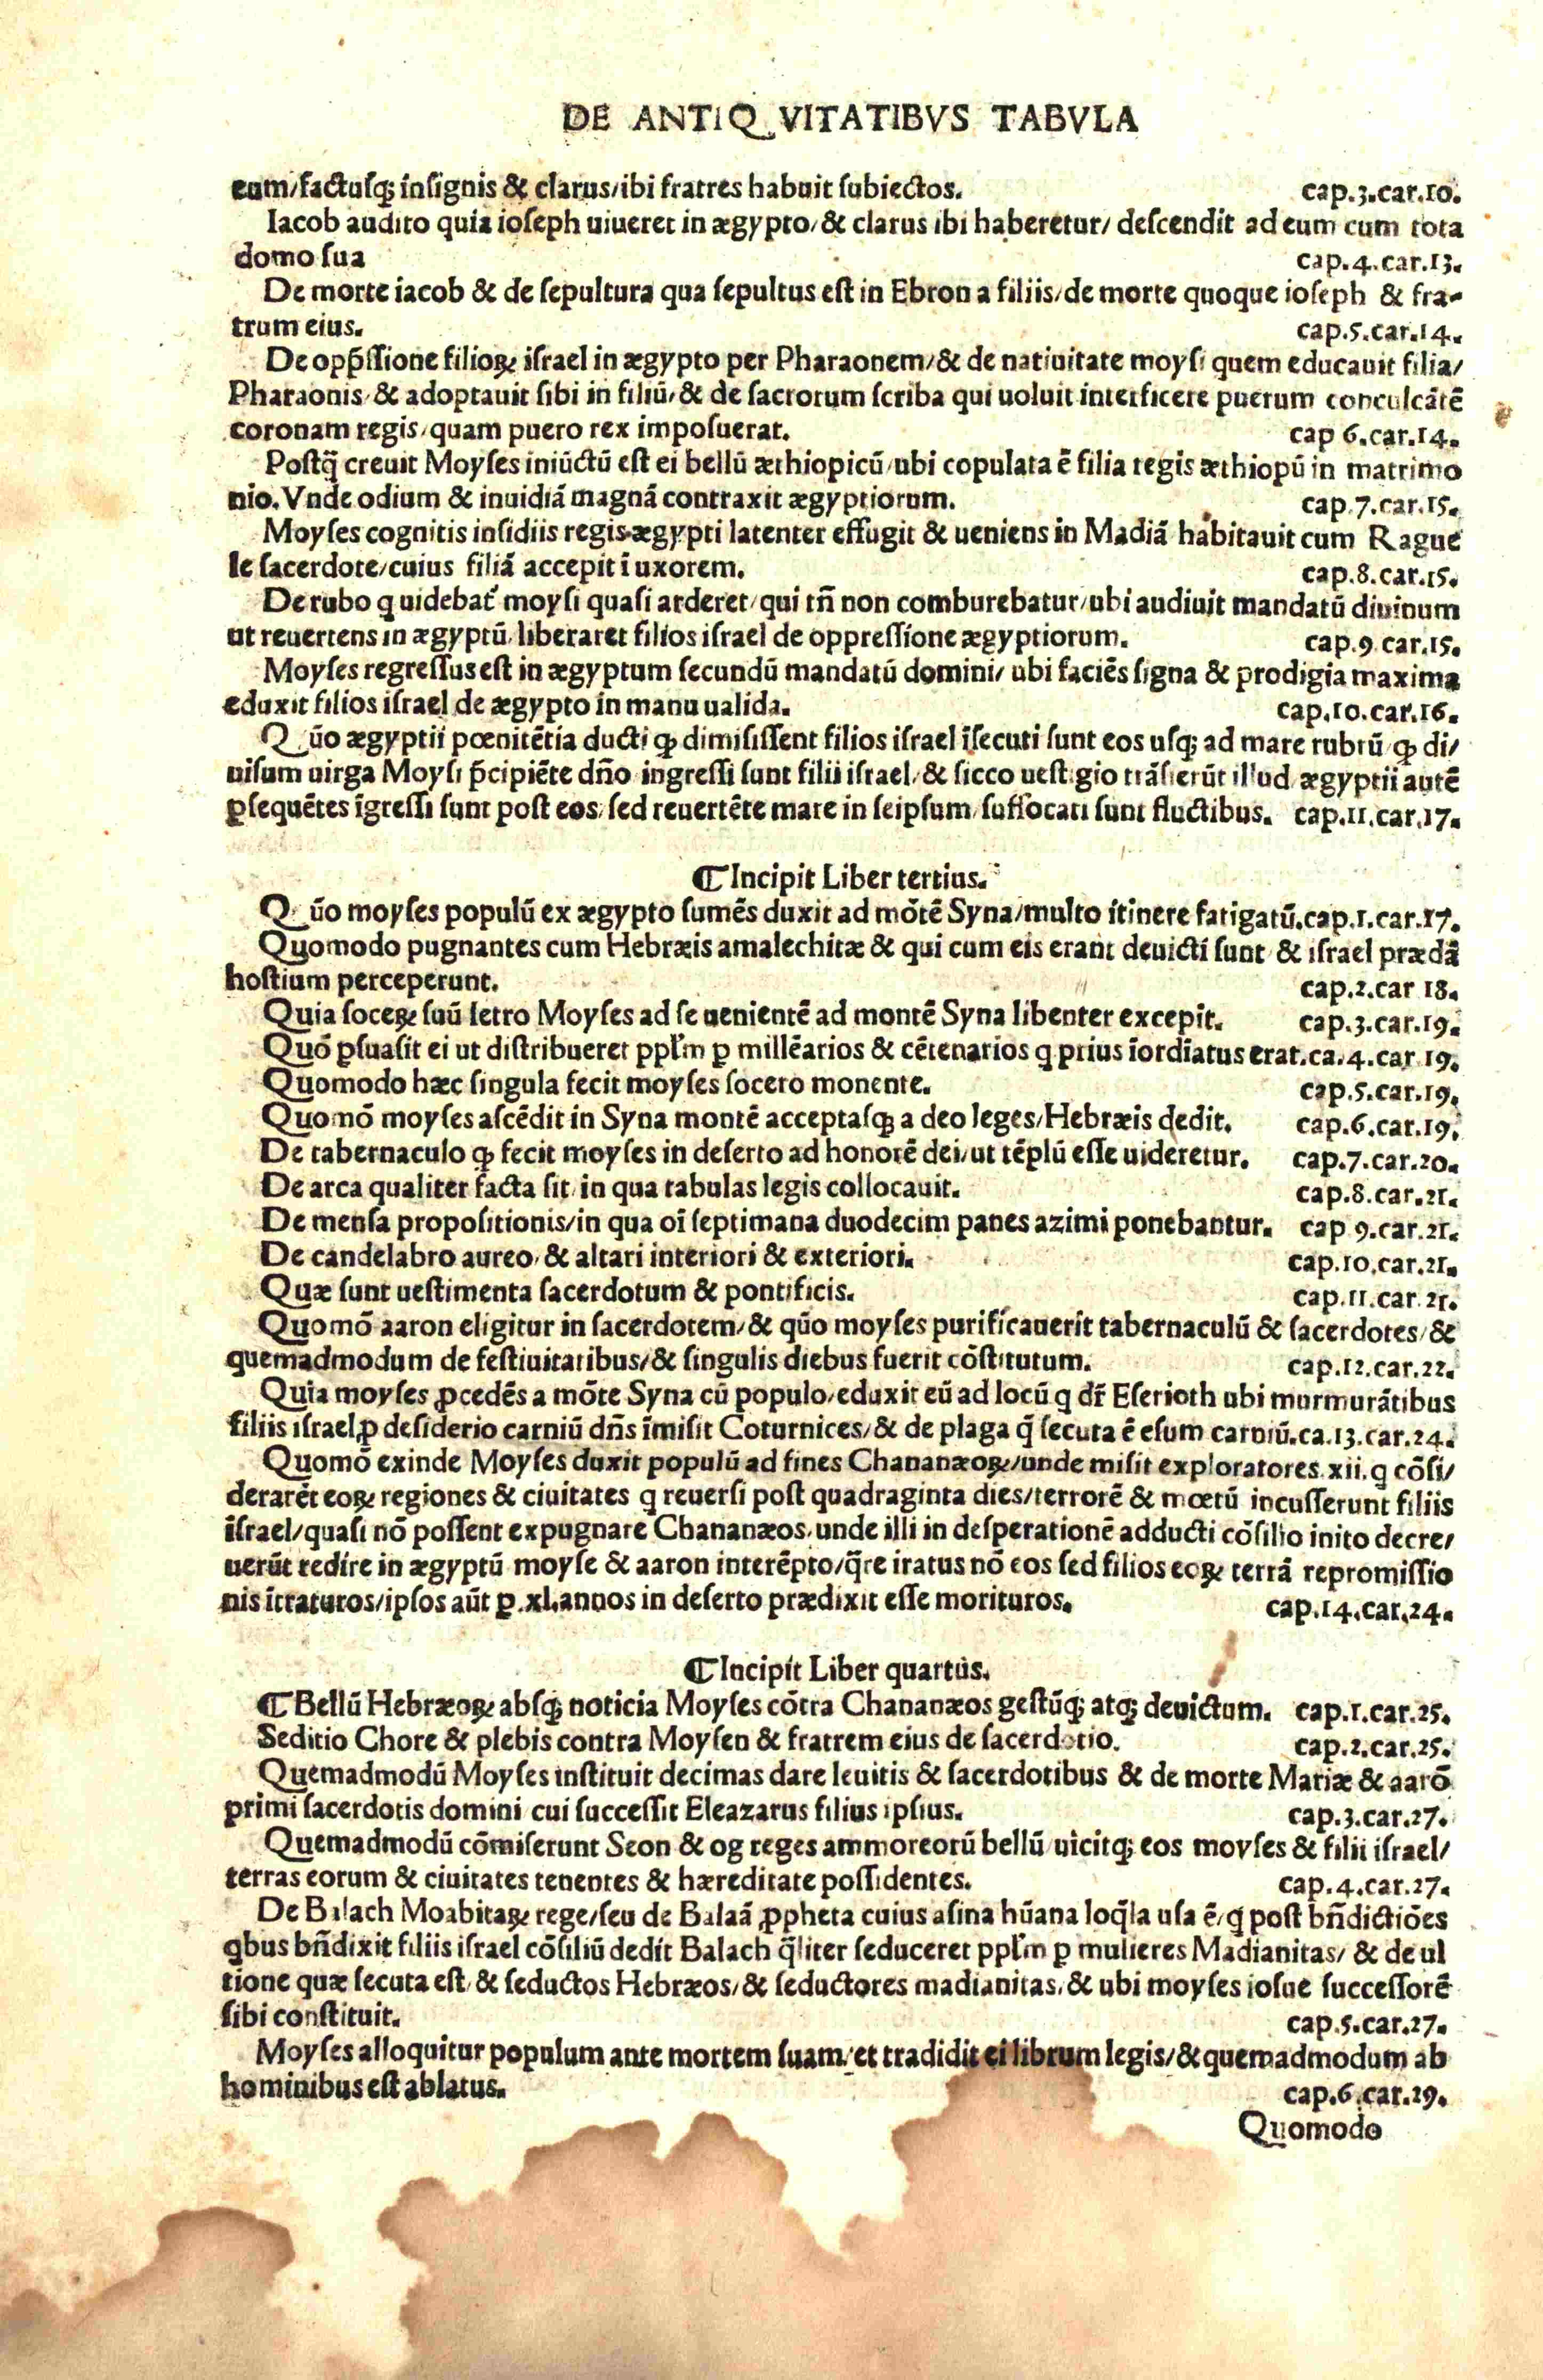 DE ANTIQVITATIBVS TABVLA
eum/factusq; insignis & clarus/ibi fratres habuit subiectos. cap.3.car.10.
Iacob audito quia ioseph uiueret in ægypto/& clarus ibi haberetur/ descendit ad eum cum tota
domo sua cap.4.car.13.
De morte iacob & de sepultura qua sepultus est in Ebron a filiis/de morte quoque ioseph & fra-
trum eius. cap.5.car.14.
De opp̃ssione filioꝝ israel in ægypto per Pharaonem/& de natiuitate moysi quem educauit filia/
Pharaonis/& adoptauit sibi in filiũ/& de sacrorum scriba qui uoluit interficere puerum conculcãtẽ
coronam regis/quam puero rex imposuerat. cap 6.car.14.
Postq̃ creuit Moyses iniũctũ est ei bellũ æthiopicũ/ubi copulata ẽ filia regis æthiopũ in matrimo
nio.Vnde odium & inuidiã magnã contraxit ægyptiorum. cap.7.car.15.
Moyses cognitis insidiis regis ægypti latenter effugit & ueniens in Madiã habitauit cum Rague
le sacerdote/cuius filiã accepit ĩ uxorem. cap.8.car.15.
De rubo q uidebať moysi quasi arderet/qui tñ non comburebatur/ubi audiuit mandatũ diuinum
ut reuertens in ægyptũ liberaret filios israel de oppressione ægyptiorum. cap.9.car.15.
Moyses regressus est in ægyptum secundũ mandatũ domini/ ubi faciẽs signa & prodigia maxima
eduxit filios israel de ægypto in manu ualida. cap.10.car.16.
Qũo ægyptii pœnitẽtia ducti ꝙ dimisissent filios israel ĩsecuti sunt eos usq; ad mare rubrũ ꝙ di/
uisum uirga Moysi p̃cipiẽte dño ingressi sunt filii israel/& sicco uestigio trãsierũt illud ægyptii autẽ
ꝑsequẽtes ĩgressi sunt post eos/sed reuertẽte mare in seipsum/suffocati sunt fluctibus. cap.11.car.17.
¶Incipit Liber tertius.
Qũo moyses populũ ex ægypto sumẽs duxit ad mõtẽ Syna/multo itinere fatigatũ.cap.1.car.17.
Quomodo pugnantes cum Hebræis amalechitæ & qui cum eis erant deuicti sunt & israel prædã
hostium perceperunt. cap.2.car 18.
Quia soceꝝ suũ Ietro Moyses ad se uenientẽ ad montẽ Syna libenter excepit. cap.3.car.19.
Quõ ꝑsuasit ei ut distribueret ppl̃m ꝑ millẽarios & cẽtenarios q prius ĩordĩatus erat.ca.4.car 19.
Quomodo hæc singula fecit moyses socero monente. cap.5.car.19.
Quomõ moyses ascẽdit in Syna montẽ acceptasq; a deo leges/Hebræis dedit. cap.6.car.19.
De tabernaculo ꝙ fecit moyses in deserto ad honorẽ dei/ut tẽplũ esse uideretur. cap.7.car.20.
De arca qualiter facta sit in qua tabulas legis collocauit. cap.8.car.21.
De mensa propositionis/in qua oĩ septimana duodecim panes azimi ponebantur. cap 9.car.21.
De candelabro aureo/& altari interiori & exteriori. cap.10.car.21.
Quæ sunt uestimenta sacerdotum & pontificis. cap.11.car.21.
Quomõ aaron eligitur in sacerdotem/& qũo moyses purificauerit tabernaculũ & sacerdotes/&
quemadmodum de festiuitatibus/& singulis diebus fuerit cõstitutum. cap.12.car.22.
Quia moyses ꝓcedẽs a mõte Syna cũ populo/eduxit eũ ad locũ q dr̃ Eserioth ubi murmurãtibus
filiis israel ꝓ desiderio carniũ dñs ĩmisit Coturnices/& de plaga q̃ secuta ẽ esum carniũ.ca.13.car.24.
Quomõ exinde Moyses duxit populũ ad fines Chananæoꝝ/unde misit exploratores.xii.q cõsi/
derarẽt eoꝝ regiones & ciuitates q reuersi post quadraginta dies/terrorẽ & mœtũ incusserunt filiis
israel/quasi nõ possent expugnare Chananæos/unde illi in desperationẽ adducti cõsilio inito decre/
uerũt redire in ægyptũ moyse & aaron interẽpto/q̃re iratus nõ eos sed filios eoꝝ terrã repromissio
nis ĩtraturos/ipsos aũt ꝑ.xl.annos in deserto prædixit esse morituros. cap.14.car.24.
¶Incipit Liber quartus.
¶Bellũ Hebræoꝝ absq; noticia Moyses cõtra Chananæos gestũq; atq; deuictum. cap.1.car.25.
Seditio Chore & plebis contra Moysen & fratrem eius de sacerdotio. cap.2.car.25.
Quemadmodũ Moyses instituit decimas dare leuitis & sacerdotibus & de morte Mariæ & aarõ
primi sacerdotis domini cui successit Eleazarus filius ipsius. cap.3.car.27.
Quemadmodũ cõmiserunt Seon & og reges ammoreorũ bellũ uicitq; eos moyses & filii israel/
terras eorum & ciuitates tenentes & hæreditate possidentes. cap.4.car.27.
De Balach Moabitaꝝ rege/seu de Balaã ꝓpheta cuius asina hũana loq̃la usa ẽ/q post bñdictiões
qbus bñdixit filiis israel cõsiliũ dedit Balach q̃liter seduceret ppl̃m ꝑ mulieres Madianitas/ & de ul
tione quæ secuta est & seductos Hebræos/& seductores madianitas/& ubi moyses iosue successorẽ
sibi constituit. cap.5.car.27.
Moyses alloquitur populum ante mortem suam/et tradidit ei librum legis/&quemadmodum ab
hominibus est ablatus. cap.6.car.29.
Quomodo